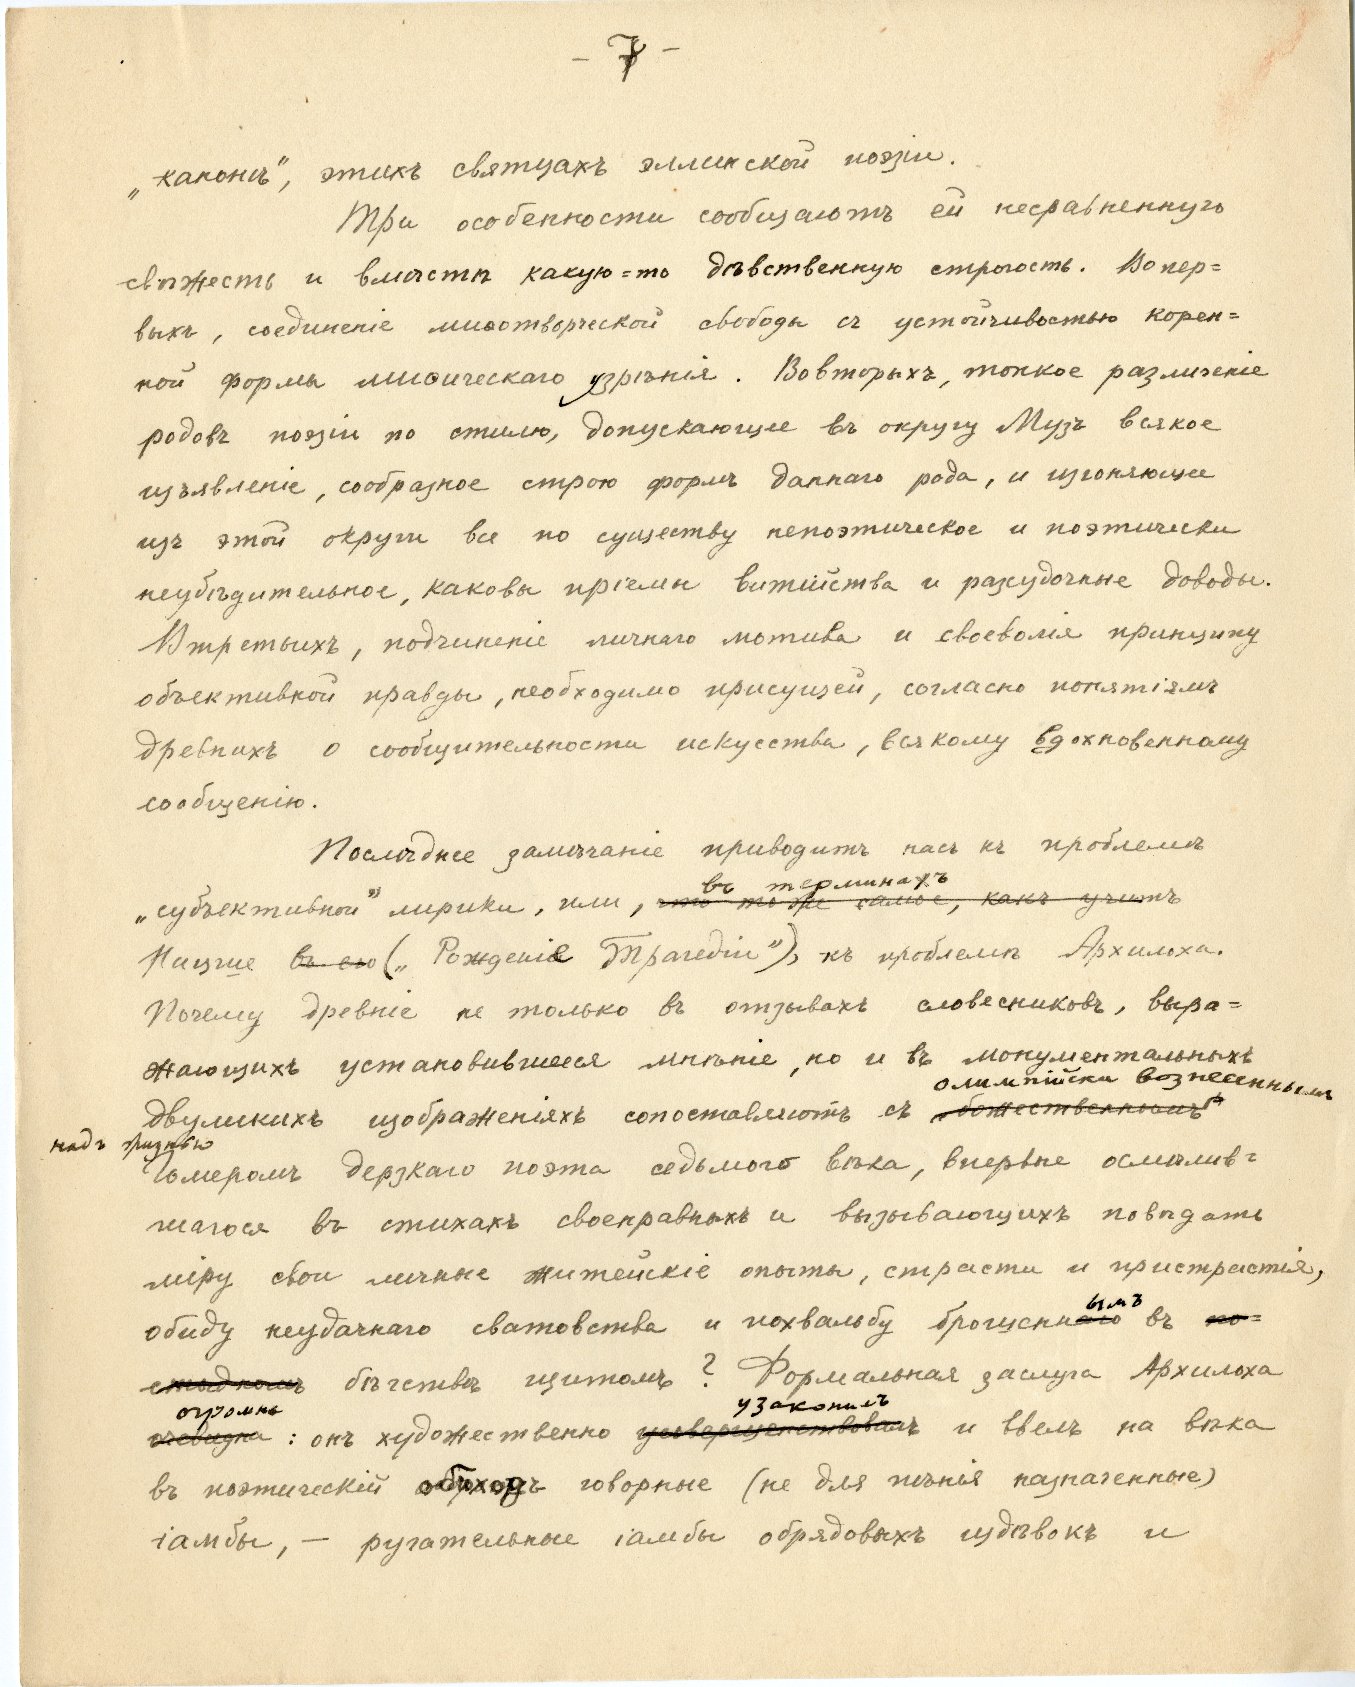 - 7 -
„канонъ“, этихъ святцахъ эллинской поэзіи.
Три особенности сообщаютъ ей несравненную
свѣжесть и вмѣстѣ какую=то дѣвственную строгость. Вопер=
выхъ, соединеніе миѳотворческой свободы съ устойчивостью корен=
ной формы миѳическаго узрѣнія. Вовторыхъ, тонкое различеніе
родовъ поэзіи по стилю, допускающее въ округу Музъ всякое
изъявленіе, сообразное строю формъ даннаго рода, и изгоняющее
изъ этой округи все по существу непоэтическое и поэтически
неубѣдительное, каковы пріемы витійства и разсудочные доводы.
Втретьихъ, подчиненіе личнаго мотива и своеволія принципу
объективной правды, необходимо присущей, согласно понятіямъ
древнихъ о сообщительности искусства, всякому вдохновенному
сообщенію.
Послѣднее замѣчаніе приводитъ насъ къ проблемѣ
въ терминахъ
„субъективной“ лирики, или, что то же самое, какъ учитъ
Ницше въ его („Рожденіе Трагедіи“), къ проблемѣ Архилоха.
Почему древніе не только въ отзывахъ словесниковъ, выра=
жающихъ установившееся мнѣніе, но и въ монументальныхъ
олимпійски вознесеннымъ
двуликихъ изображеніяхъ сопоставляютъ съ божественнымъ
надъ жизнью
Гомеромъ дерзкаго поэта седьмого вѣка, впервые осмѣлив=
шагося въ стихахъ своенравныхъ и вызывающихъ повѣдать
міру свои личные житейскіе опыты, страсти и пристрастія,
ымъ
обиду неудачнаго сватовства и похвальбу брошеннаго въ по=
стыдномъ бѣгствѣ щитомъ? Формальная заслуга Архилоха
огромна узаконилъ
очевидна: онъ художественно усовершенствовалъ и ввелъ на вѣка
въ поэтическій обиходъ говорные (не для пѣнія назначенные)
іамбы, — ругательные іамбы обрядовыхъ издѣвокъ и